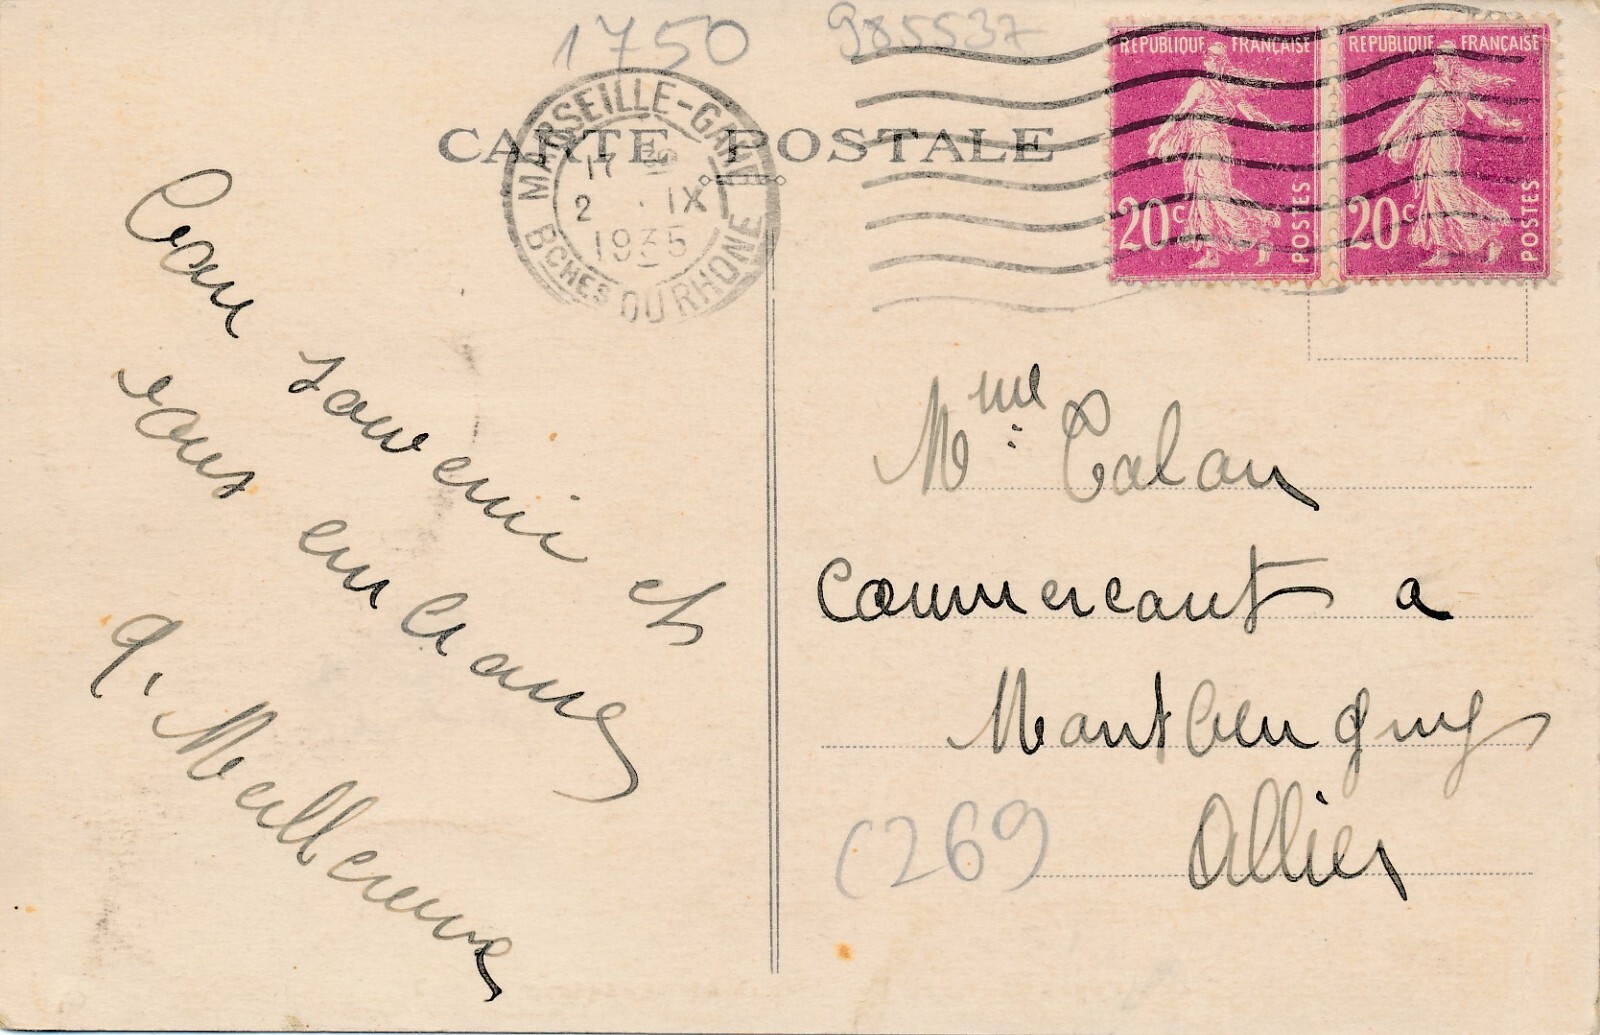 1750
985537
CARTE POSTALE
MARSEILLE-GARE
17 30
2 . IX
1935
BCHES DU RHONE
REPUBLIQUE FRANÇAISE
20c
POSTES
REPUBLIQUE FRANÇAISE
20c
POSTES
Bon souvenir et
vous embrasse
Mme Calan
Commercant a
Allier
(269